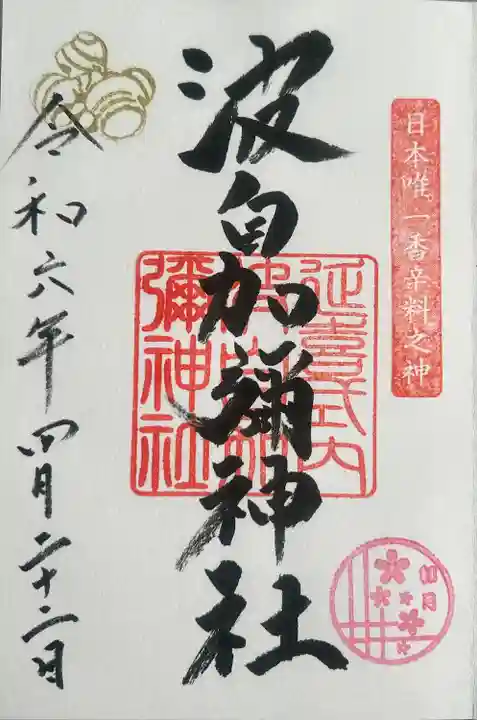 日本唯一香辛料之神
波自加彌神社
延喜式内
波自加
彌神社
四月
令和六年四月二十二日